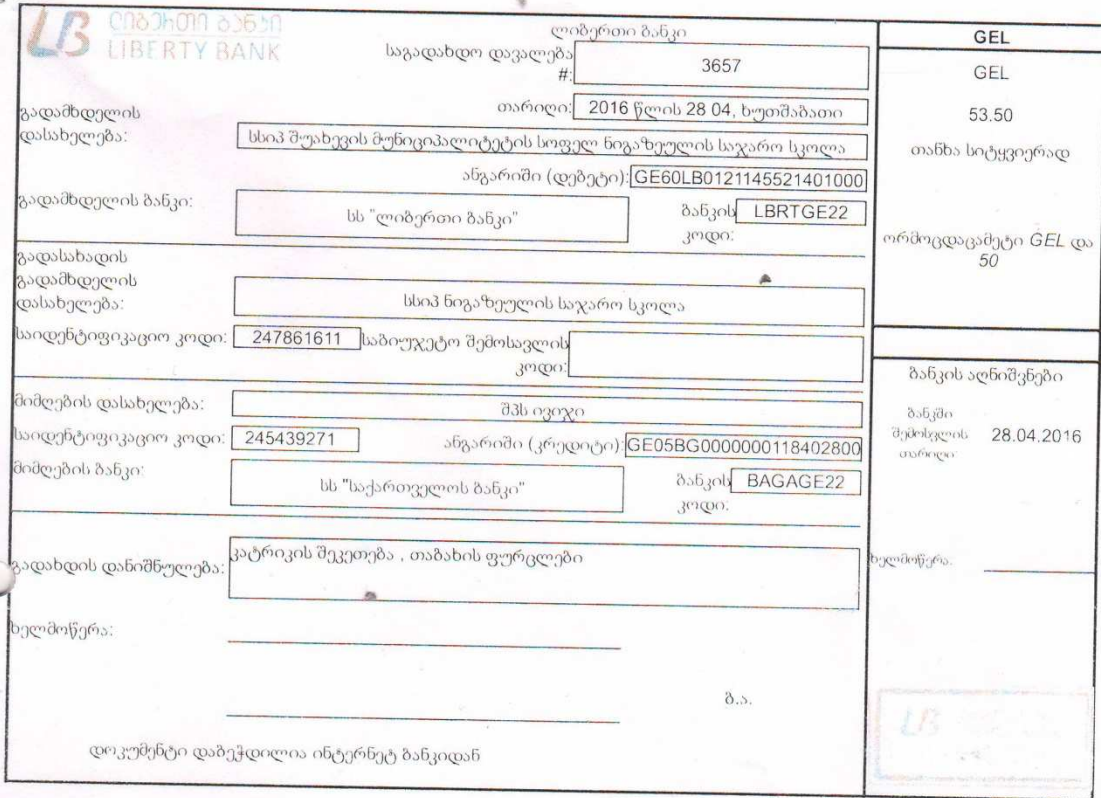 ლიბერთი ბანკი
LIBERTY BANK
ლიბერთი ბანკი
საგადახდო დავალება #: 3657
თარიღი: 2016 წლის 28 04, ხუთშაბათი
გადამხდელის დასახელება: სსიპ შუახევის მუნიციპალიტეტის სოფელ ნიგაზეულის საჯარო სკოლა
ანგარიში (დებეტი): GE60LB0121145521401000
გადამხდელის ბანკი: სს "ლიბერთი ბანკი" ბანკის კოდი: LBRTGE22
გადასახადის
გადამხდელის
დასახელება: სსიპ ნიგაზეულის საჯარო სკოლა
საიდენტიფიკაციო კოდი: 247861611 საბიუჯეტო შემოსავლის კოდი:
მიმღების დასახელება: შპს ივიჯი
საიდენტიფიკაციო კოდი: 245439271 ანგარიში (კრედიტი): GE05BG0000000118402800
მიმღების ბანკი: სს "საქართველოს ბანკი" ბანკის კოდი: BAGAGE22
გადახდის დანიშნულება: კატრიკის შეკეთება , თაბახის ფურცლები
ხელმოწერა:
ბ.ა.
დოკუმენტი დაბეჭდილია ინტერნეტ ბანკიდან
GEL
GEL
53.50
თანხა სიტყვიერად
ორმოცდაცამეტი GEL და
50
ბანკის აღნიშვნები
ბანკში
შემოსვლის 28.04.2016
თარიღი
ხელმოწერა.
LB